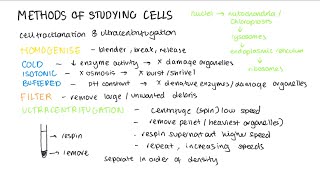 METHODS OF STUDYING CELLS
nucleus → mitochondria /
chloroplasts
↓
lysosomes
↓
endoplasmic reticulum
↓
ribosomes
cell fractionation & ultracentrifugation
HOMOGENISE - blender, break, release
COLD ~ ↓ enzyme activity → × damage organelles
ISOTONIC - × osmosis → × burst/shrivel
BUFFERED - pH constant → × denature enzymes/damage organelles
FILTER - remove large / unwanted debris
ULTRACENTRIFUGATION - centrifuge (spin) low speed
- remove pellet (heaviest organelles)
→ respin
- respin supernatant higher speed
→ remove
- repeat, increasing speeds
separate in order of density